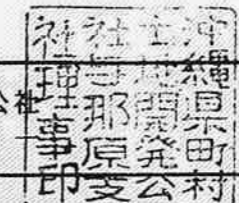 沖縄県町村
土地開発公
社与那原支
社理事印
公社